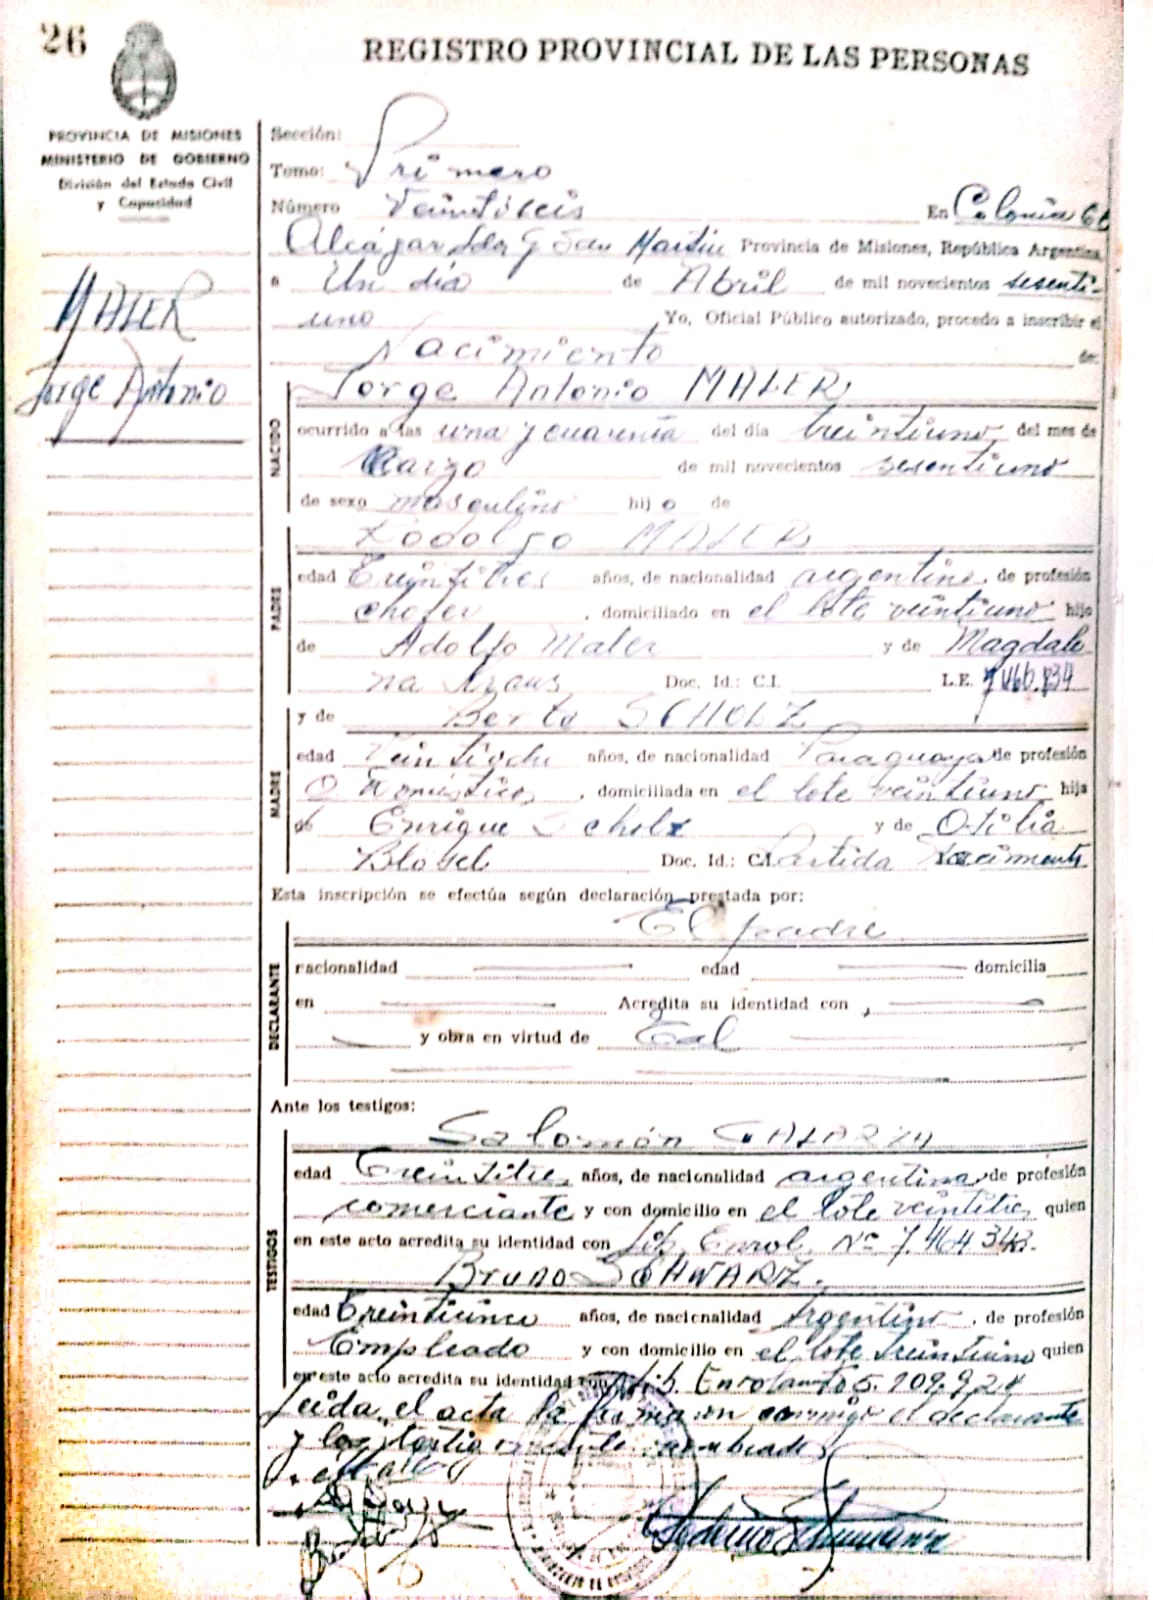 26
REGISTRO PROVINCIAL DE LAS PERSONAS
PROVINCIA DE MISIONES
MINISTERIO DE GOBIERNO
División del Estado Civil
y Capacidad
Sección:
Tomo: Primero
Número Veintiseis En Colonia
Alcázar Ldor G San Martin Provincia de Misiones, República Argentina,
a Un dia de Abril de mil novecientos sesenti-
uno Yo, Oficial Público autorizado, procedo a inscribir el
Nacimiento de:
MALER
Jorge Antonio
NACIDO
Jorge Antonio MALER
ocurrido a las una y cuarenta del día treintiuno del mes de
Marzo de mil novecientos sesentiuno
de sexo masculino hijo de
PADRE
Rodolfo MALER
edad treintitres años, de nacionalidad argentina, de profesión
chofer, domiciliado en el lote veintiuno hijo
de Adolfo Maler y de Magdale
na Kraus Doc. Id.: C.I. L.E. 7.466.834
MADRE
y de Berta SCHOLZ
edad Veintiocho años, de nacionalidad Paraguaya de profesión
Q Domésticos, domiciliada en el lote veintiuno hija
de Enrique Scholz y de Otilia
Doc. Id.: C.I. Partida Nacimiento
Esta inscripción se efectúa según declaración prestada por:
DECLARANTE
El padre
nacionalidad edad domicilia
en Acredita su identidad con
y obra en virtud de Tal
Ante los testigos:
TESTIGOS
Salomón GALARZA
edad Treintitres años, de nacionalidad argentina, de profesión
comerciante y con domicilio en el lote quien
en este acto acredita su identidad con Lib. Enrol. Nº 7.464.348.
Bruno SCHWARZ.
edad Treintiuno años, de nacionalidad Argentino, de profesión
Empleado y con domicilio en el lote treintiuno quien
en este acto acredita su identidad con Lib. Enrolam. 5.109.924
Leida el acta la firman conmigo el declarante
y los testigos